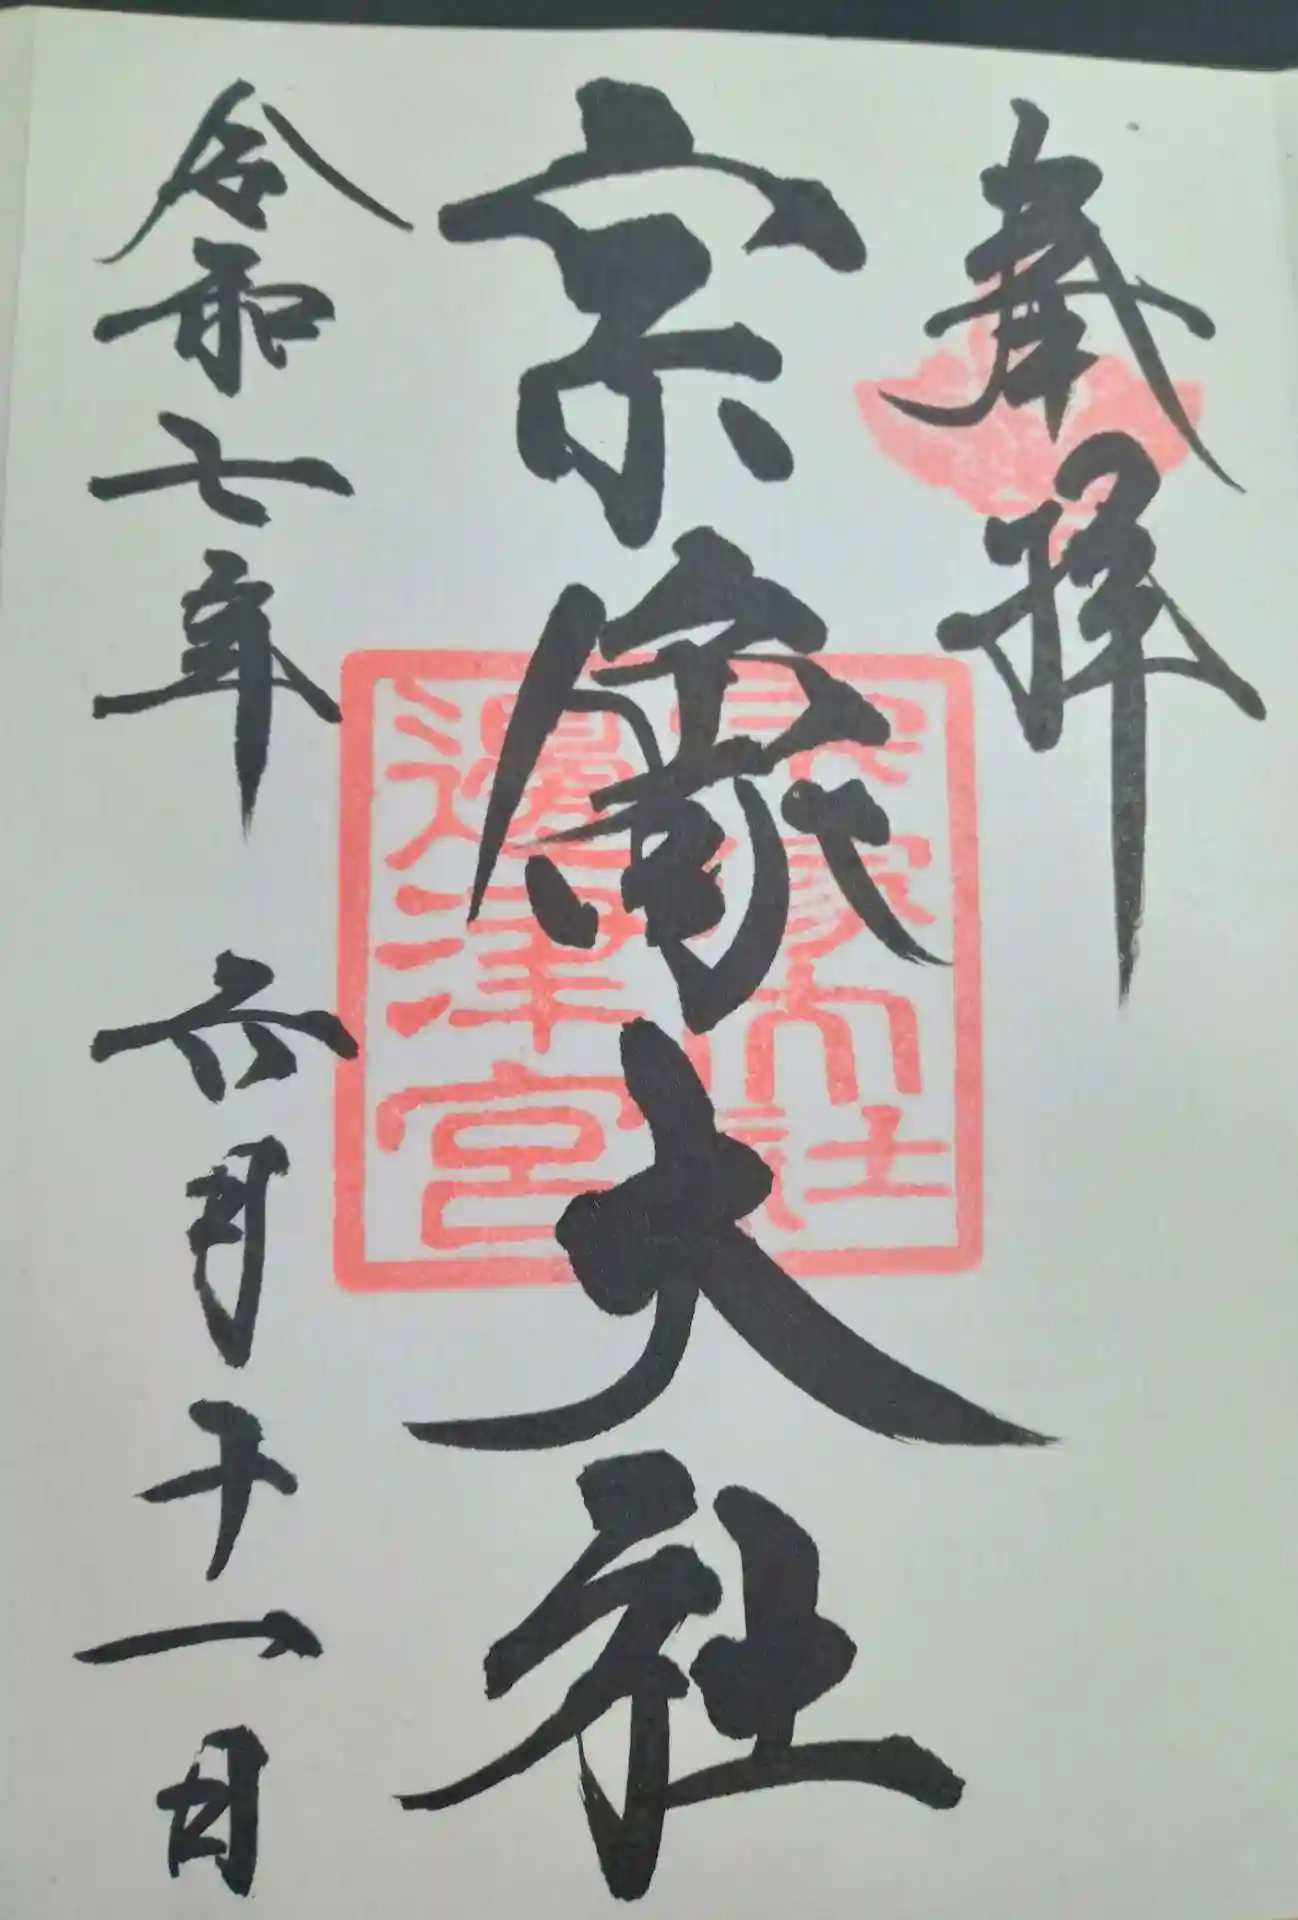 奉拝
宗像大社
宗像大社
邊津宮
令和七年 六月十一日